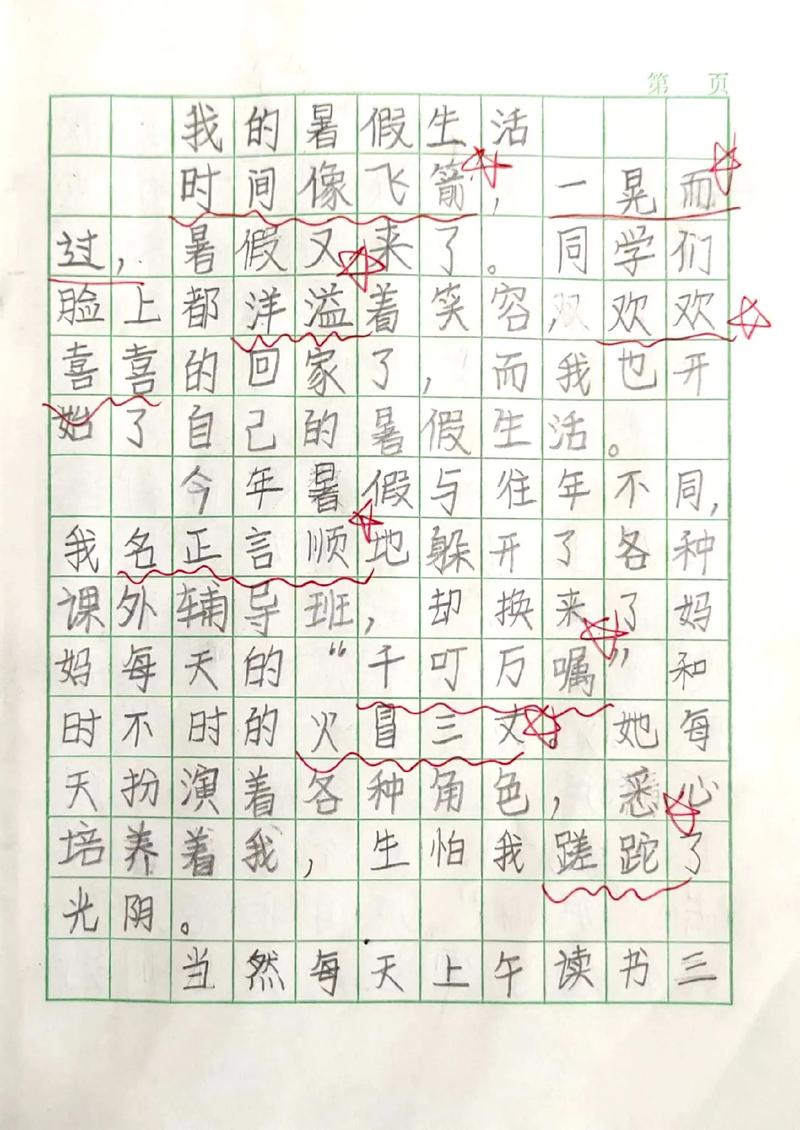 第 页
我的暑假生活
时间像飞箭，一晃而
过，暑假又来了。同学们
脸上都洋溢着笑容，欢欢
喜喜的回家了，而我也开
始了自己的暑假生活。
今年暑假与往年不同，
我名正言顺地躲开了各种
课外辅导班，却换来了妈
妈每天的“千叮万嘱”和
时不时的火冒三丈。她每
天扮演着各种角色，悉心
培养着我，生怕我蹉跎了
光阴。
当然每天上午读书三